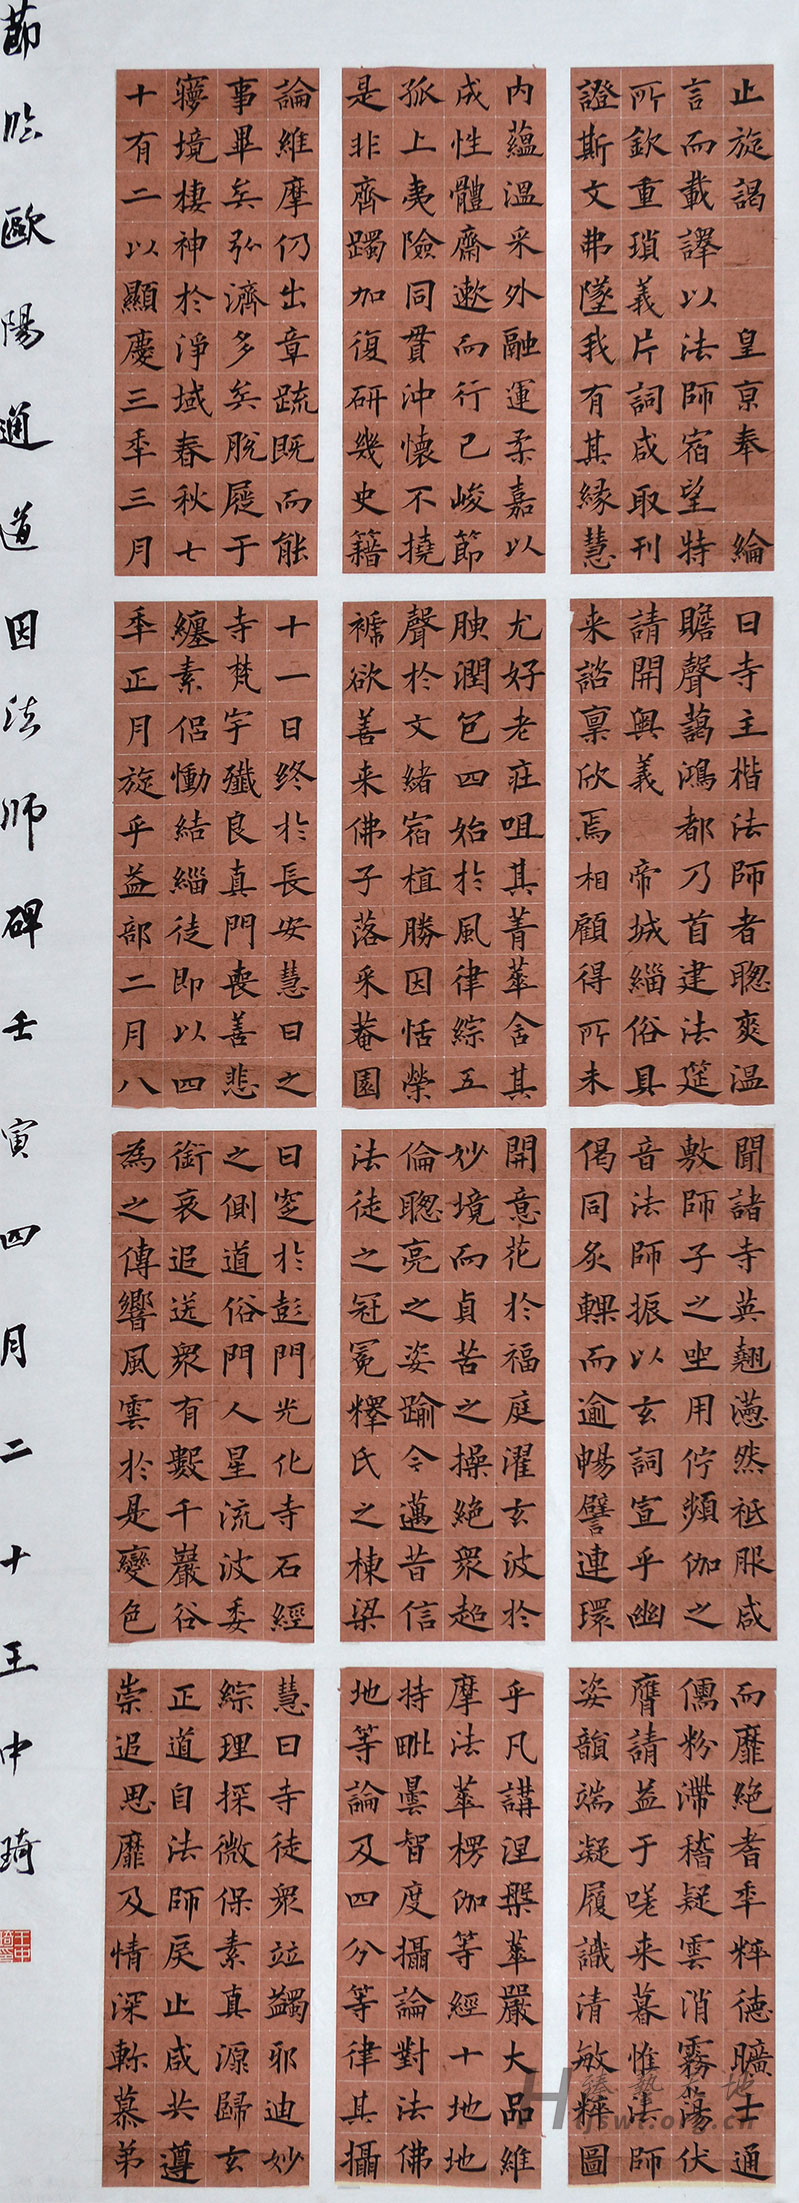 止旋謁 皇京奉 綸
言而載譯以法師宿望特
所欽重瑣義片詞咸取刊
證斯文弗墜我有其緣慧
日寺主楷法師者聦爽溫
贍聲藹鴻都乃首建法筵
請開奧義 帝城緇俗具
来諮稟欣焉相顧得所未
聞諸寺英翹懣然祗服咸
敷師子之坐用佇頻伽之
音法師振以玄詞宣乎幽
偈同炙輠而逾暢譬連環
而靡絕耆年粹德曠士通
儒粉滯稽疑雲消霧蕩伏
膺請益于嗟来暮惟法師
姿韻端凝履識清敏粹圖
內蘊溫采外融運柔嘉以
成性體齋遬而行己峻節
孤上夷險同貫沖懷不撓
是非齊躅加復研幾史籍
尤好老莊咀其菁華含其
腴潤包四始於風律綜五
聲於文緒宿植勝因恬榮
褫欲善来佛子落采菴園
開意花於福庭濯玄波於
妙境而貞苦之操絕衆超
倫聦亮之姿踰今邁昔信
法徒之冠冕釋氏之棟梁
乎凡講涅槃華嚴大品維
摩法華楞伽等經十地地
持毗曇智度攝論對法佛
地等論及四分等律其攝
論維摩仍出章疏既而能
事畢矣弘濟多矣脫屣于
寧境棲神於淨域春秋七
十有二以顯慶三年三月
十一日終於長安慧日之
寺梵宇殲良真門喪善悲
纏素侶慟結緇徒即以四
年正月旋乎益部二月八
日窆於彭門光化寺石經
之側道俗門人星流波委
銜哀追送衆有數千巖谷
為之傳響風雲於是變色
慧日寺徒衆並蠲邪迪妙
綜理探微保素真源歸玄
正道自法師戾止咸共遵
崇追思靡及情深軫慕弟
節臨歐陽通道因法師碑壬寅四月二十王中琦
王中琦印
臻藝天地
Htjswt.org.cn